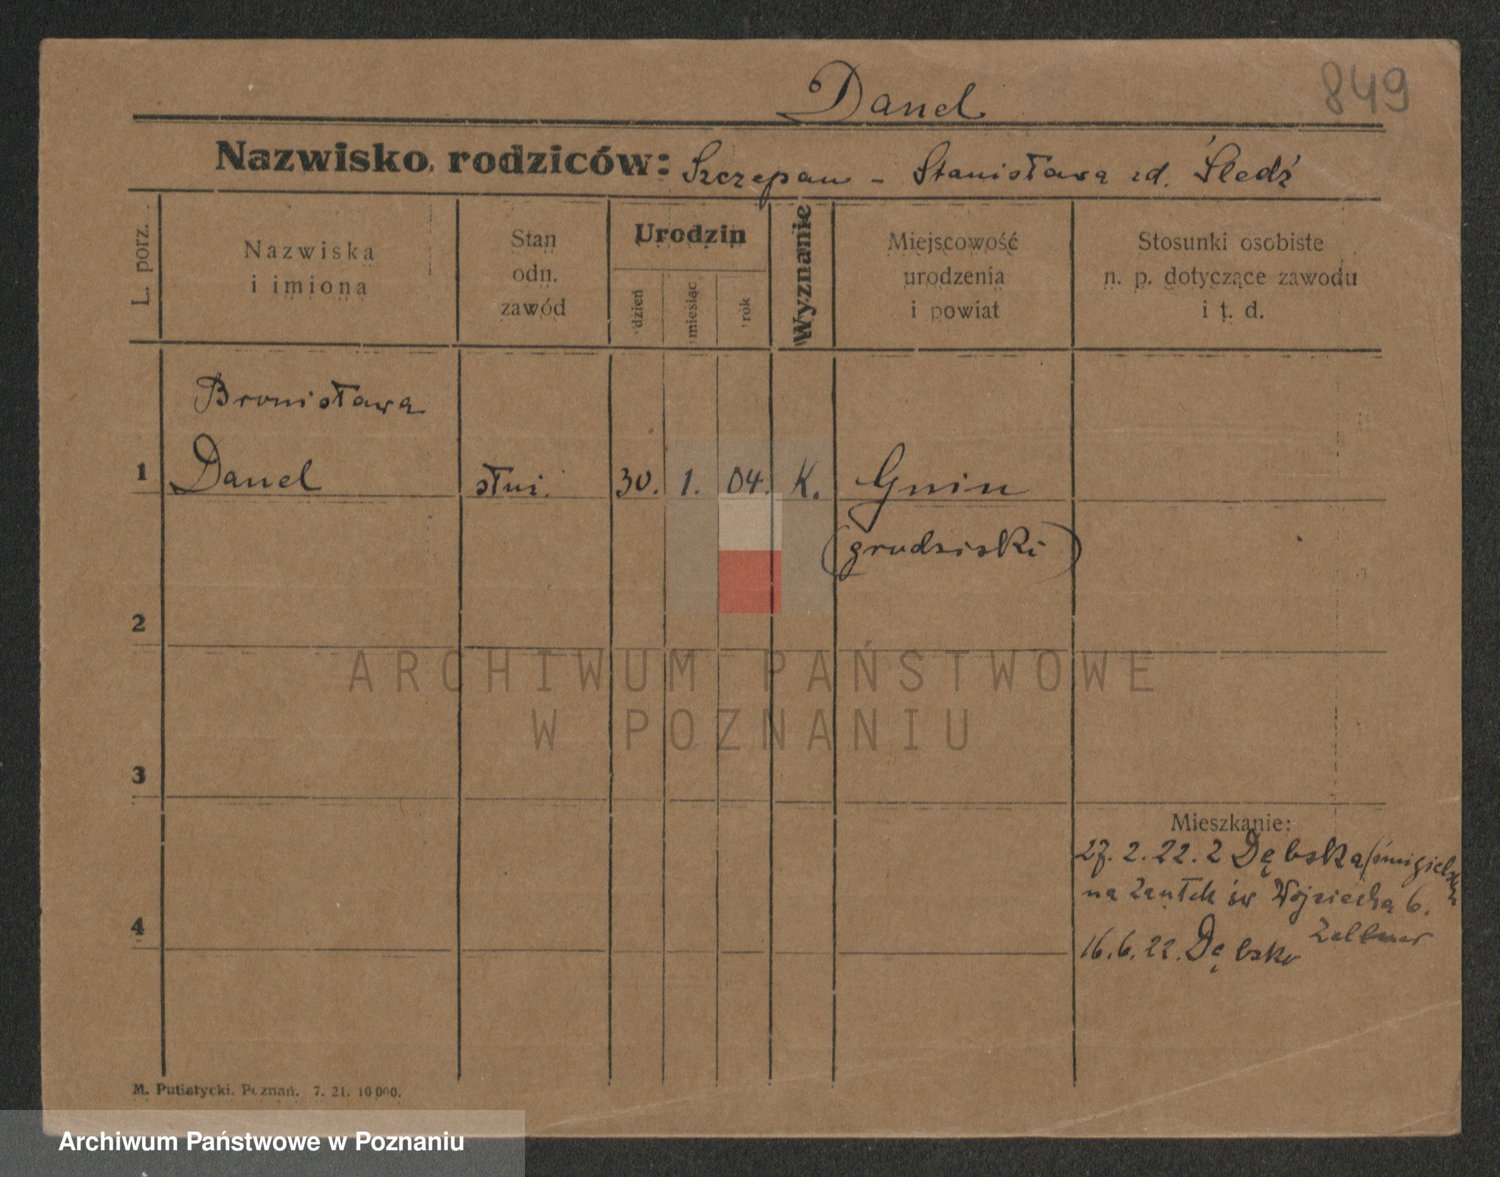 Danel
849
Nazwisko rodziców: Szczepan - Stanisława zd. Śledź
L. porz.
Nazwiska
i imiona
Stan
odn.
zawód
Urodzin
dzień
miesiąc
rok
Wyznanie
Miejscowość
urodzenia
i powiat
Stosunki osobiste
n. p. dotyczące zawodu
i t. d.
Bronisława
1 Danel służ. 30. 1. 04. K. Gnin
(grodziski)
2
ARCHIWUM PAŃSTWOWE
W POZNANIU
3
Mieszkanie:
27. 2. 22. z Dębska
na Zaułek św Wojciecha 6.
4
16. 6. 22. Dębsko
M. Putiatycki. Poznań. 7. 21. 10 000.
Archiwum Państwowe w Poznaniu